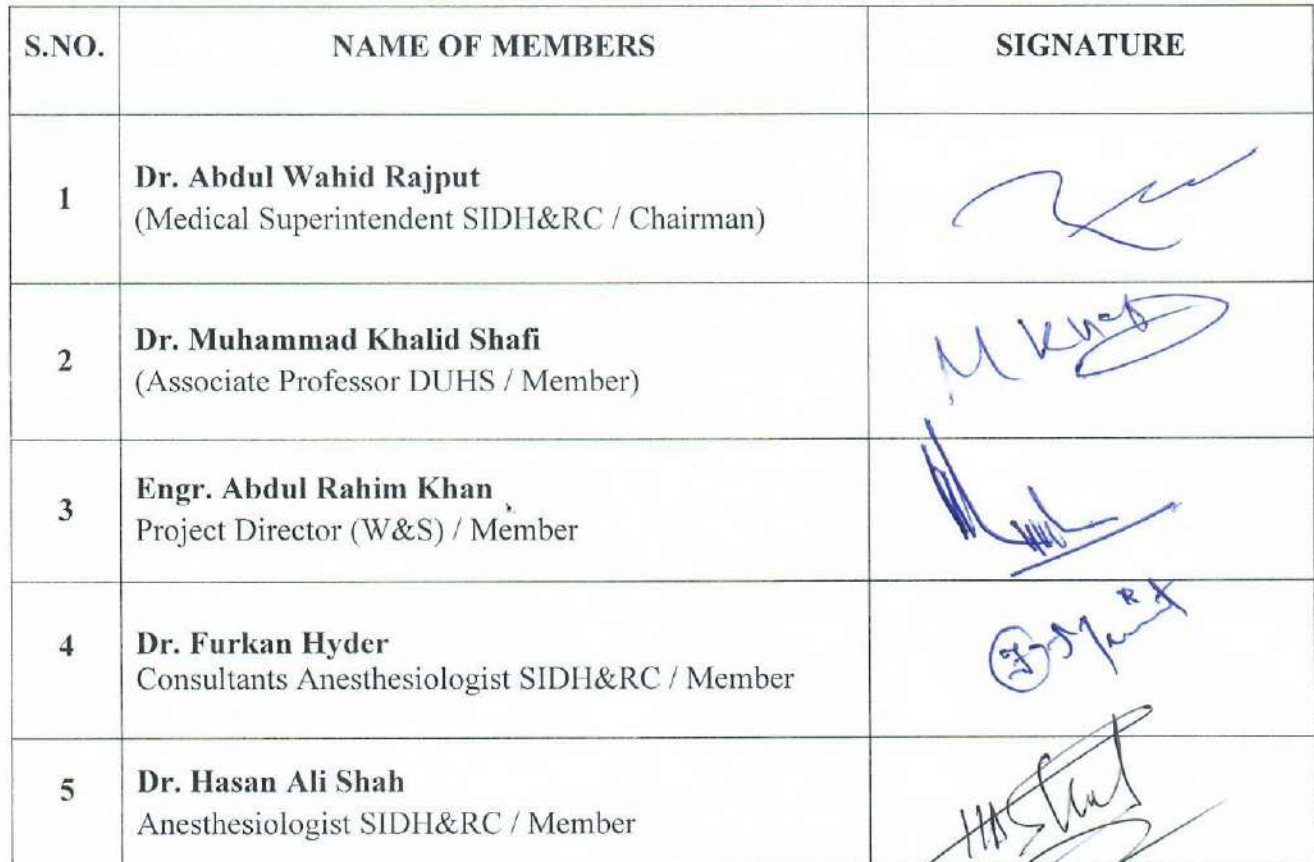 S.NO. NAME OF MEMBERS SIGNATURE
1 Dr. Abdul Wahid Rajput
(Medical Superintendent SIDH&RC / Chairman)
2 Dr. Muhammad Khalid Shafi
(Associate Professor DUHS / Member)
M Kha
3 Engr. Abdul Rahim Khan
Project Director (W&S) / Member
4 Dr. Furkan Hyder
Consultants Anesthesiologist SIDH&RC / Member
5 Dr. Hasan Ali Shah
Anesthesiologist SIDH&RC / Member